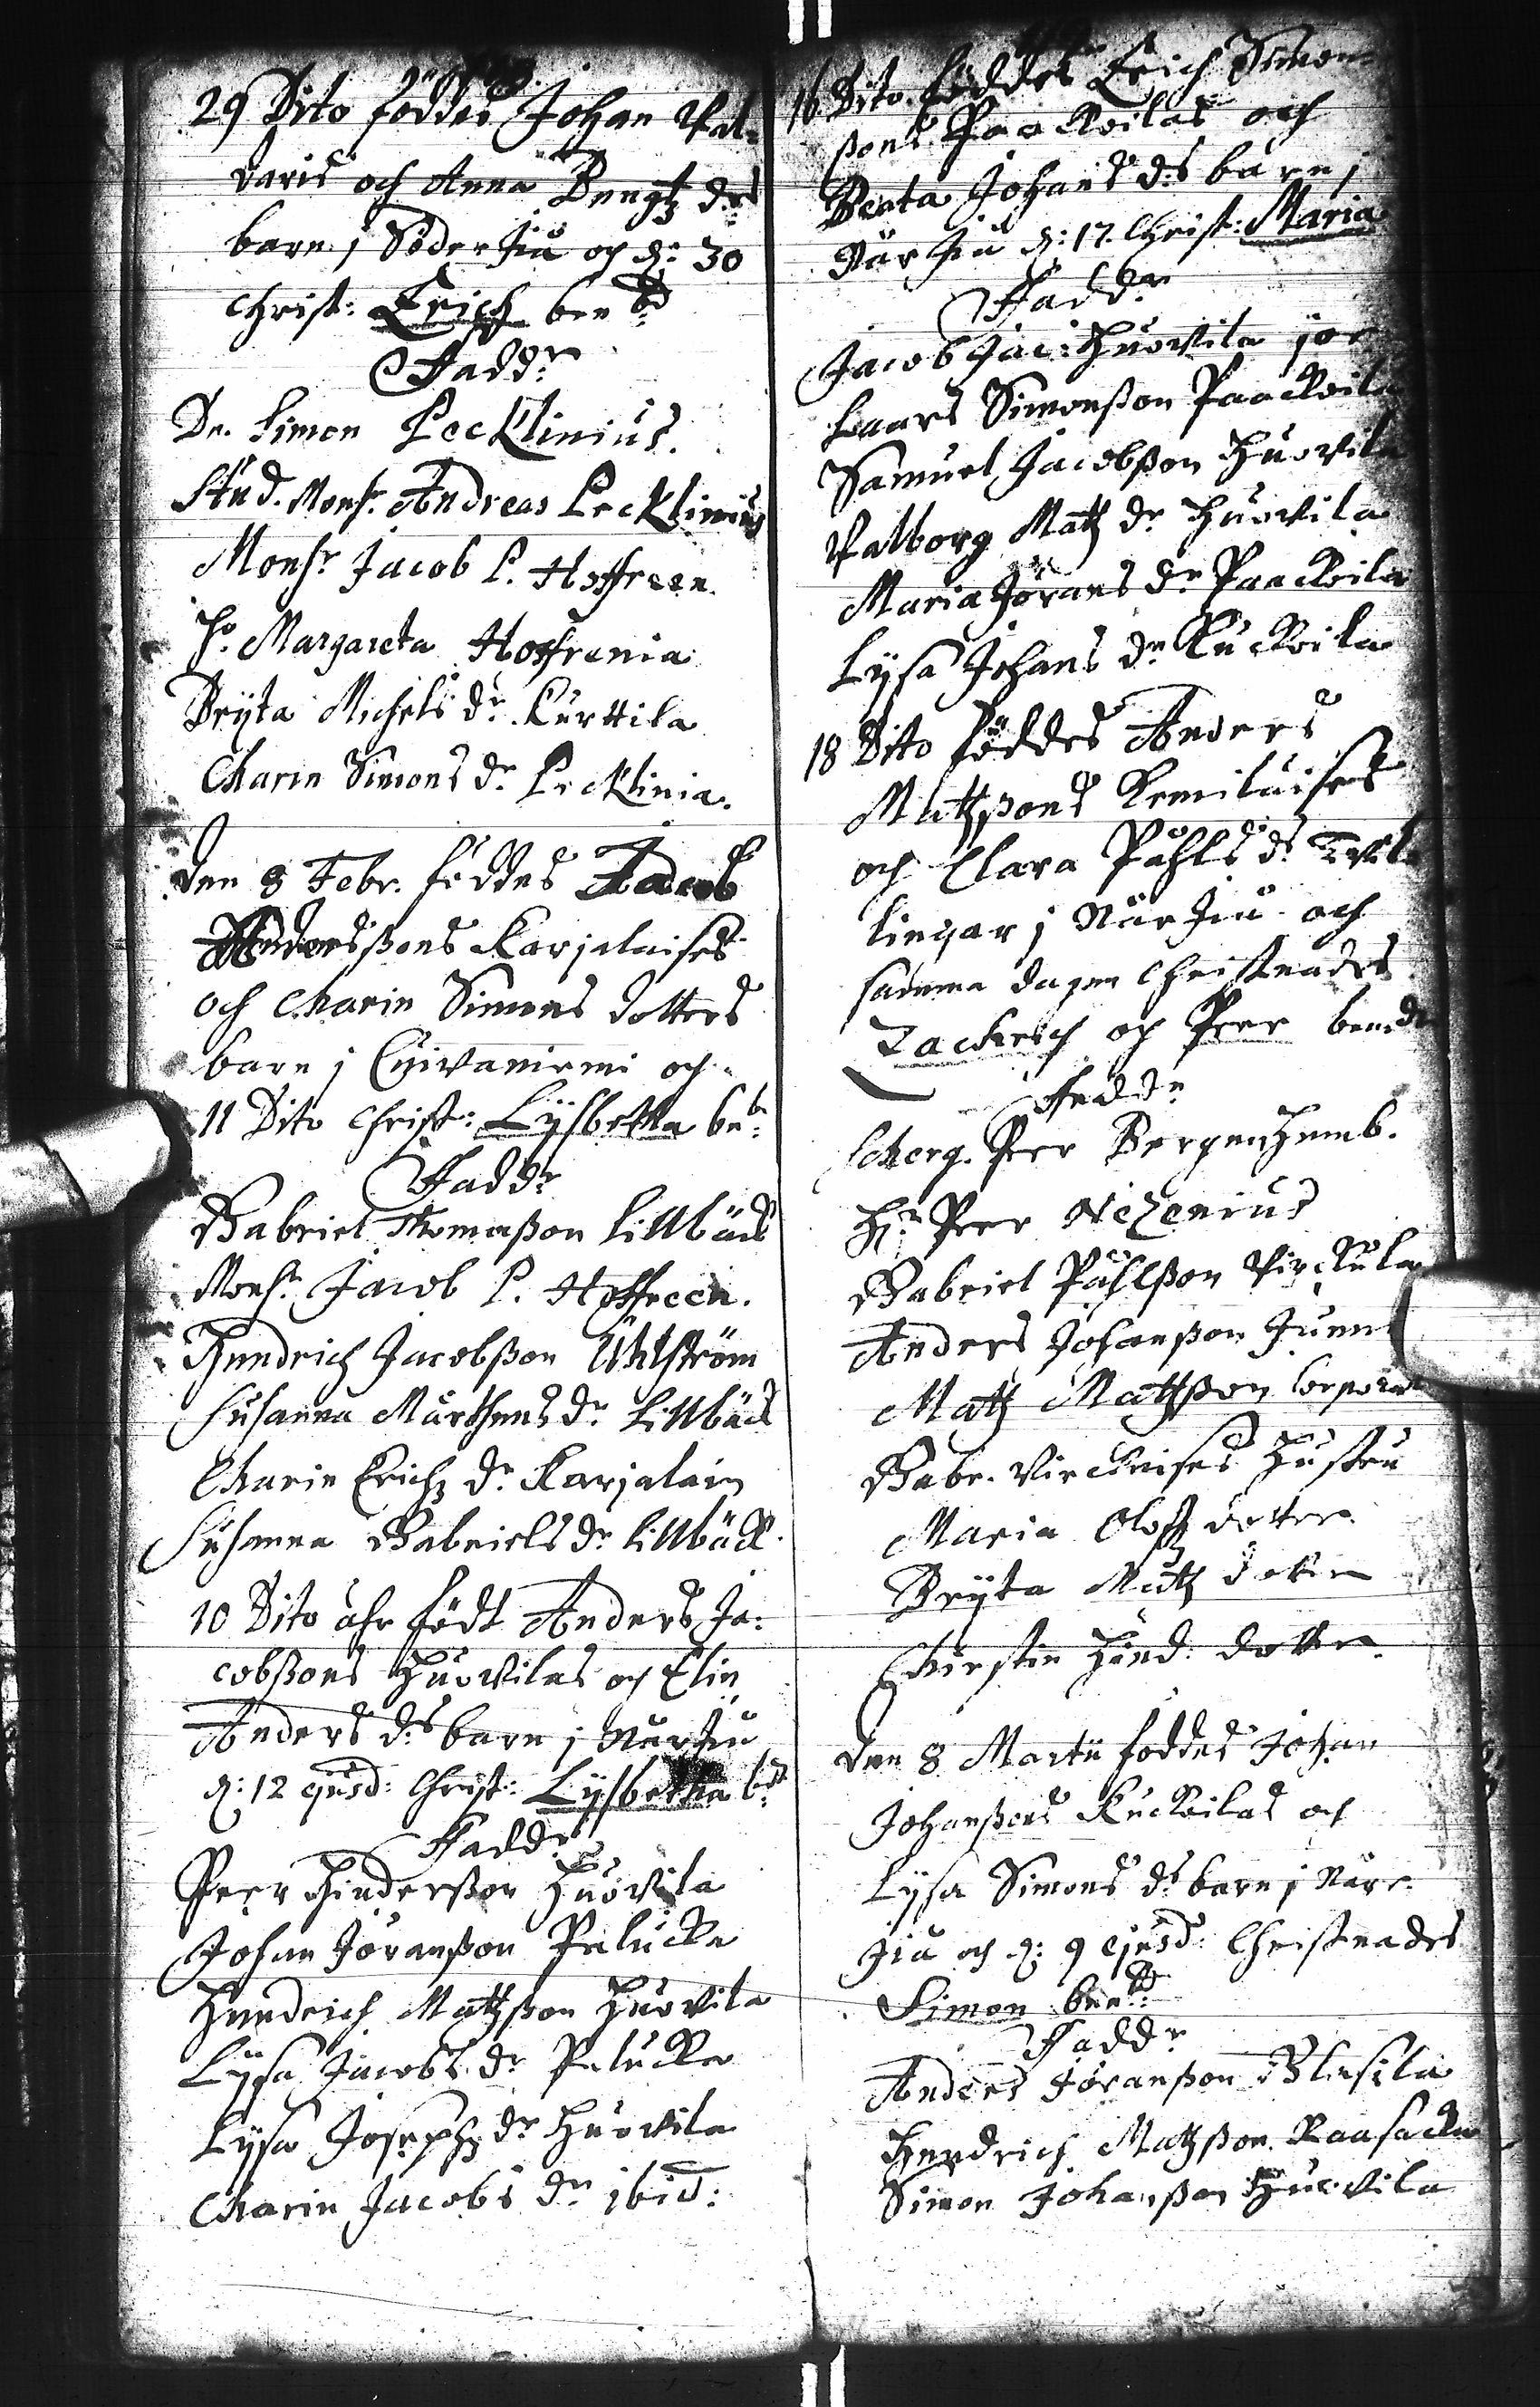 29 Dito föddes Johan Val-
varis och Anna Bengtz ds
barn j Söder Jiu och d: 30
Christ: Erich ben:d
Fadd:r
Dn. Simon Peecklinius.
Stud. Mons:r Andreas Pecklinius
Mons:r Jacob P. Hoffreen.
H:o Margareta Hoffrenia
Bryta Michels d:r Kurttila
Charin Simons d:r Pecklinia.
Den 8 Febr. föddes Jacob
Andersßons Karjalaises
och Charin Simons dotters
barn j Cuivaniemi och
11 Dito Christ: Lysbetta be:
Fadd:r
Gabriel Thomaßon Lillbäck
Mons:r Jacob P. Hoffreen.
Hendrich Jacobßon Uhlström
Susanna Mårthens d:r Lillbäck
Charin Erichz d:r Karjalain
Susanna Gabriels d:r Lillbäck.
10 Dito åhr födt Anders Ja:
cobßons Huovilas och Elin
Anders d:s barn j När Jiu
d: 12 ejusd: Christ: Lysbetha b:
Fadd:r
Peer Hinderßon Huovila
Johan Jöranßon Palucka
Hendrich Matzßon Huovila
Lysa Jacobs d:r Palucka
Lysa Josephz d:r Huovila
Charin Jacobs d:r ibid:
16 Dito föddes Erich Simon-
ßons Paackoilas och
Beata Johans d:s barn j
När Jiu d: 17. Christ: Maria
Fadd:r
Jacob Jac: Huovila jor
Laars Simonßon Paackoila
Samuel Jacobßon Huovila
Valborg Matz d:r Huovila
Maria Jörans d:r Paackoila
Lysa Johans d:r Kuckoila
18 Dito föddes Anders
Matzßons Kemiluises
och Clara Påhls d:s Tvil-
lingar j När Jiu och
samma dagen Christnades
Zachrich och Peer bemd:
Fadd:r
Scherg. Peer Bergenhemb.
H:r Peer Nezenius
Gabriel Påhlßon Virckula
Anders Johanßon Juun
Matz Matzßon Corporal
Gabr. Virckuises Hustru
Maria Oloffz dotter
Bryta Matz dotter
Christin Hind: dotter.
Den 8 Martii föddes Johan
Johanßons Kuckoilas och
Lysa Simons d:s barn j När-
Jiu och d: 9 ejusd: Christnades
Simon ben:d
Fadd:r
Anders Jöranßon Blasila
Hendrich Matzßon Raasacka
Simon Johanßon Huovila